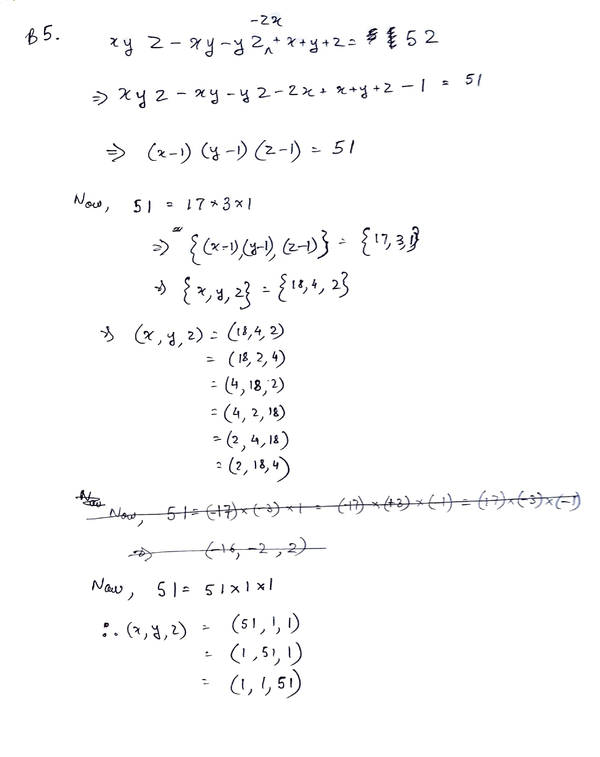 B5. xyz - xy - yz - zx + x + y + z = 52
⇒ xyz - xy - yz - zx + x + y + z - 1 = 51
⇒ (x-1) (y-1) (z-1) = 51
Now, 51 = 17 × 3 × 1
⇒ {(x-1), (y-1), (z-1)} = {17, 3, 1}
⇒ {x, y, z} = {18, 4, 2}
⇒ (x, y, z) = (18, 4, 2)
= (18, 2, 4)
= (4, 18, 2)
= (4, 2, 18)
= (2, 4, 18)
= (2, 18, 4)
Now, 51 = (-17) × (-3) × 1 = (-17) × (+3) × (-1) = (17) × (-3) × (-1)
⇒ (-16, -2, 2)
Now, 51 = 51 × 1 × 1
∴ (x, y, z) = (51, 1, 1)
= (1, 51, 1)
= (1, 1, 51)